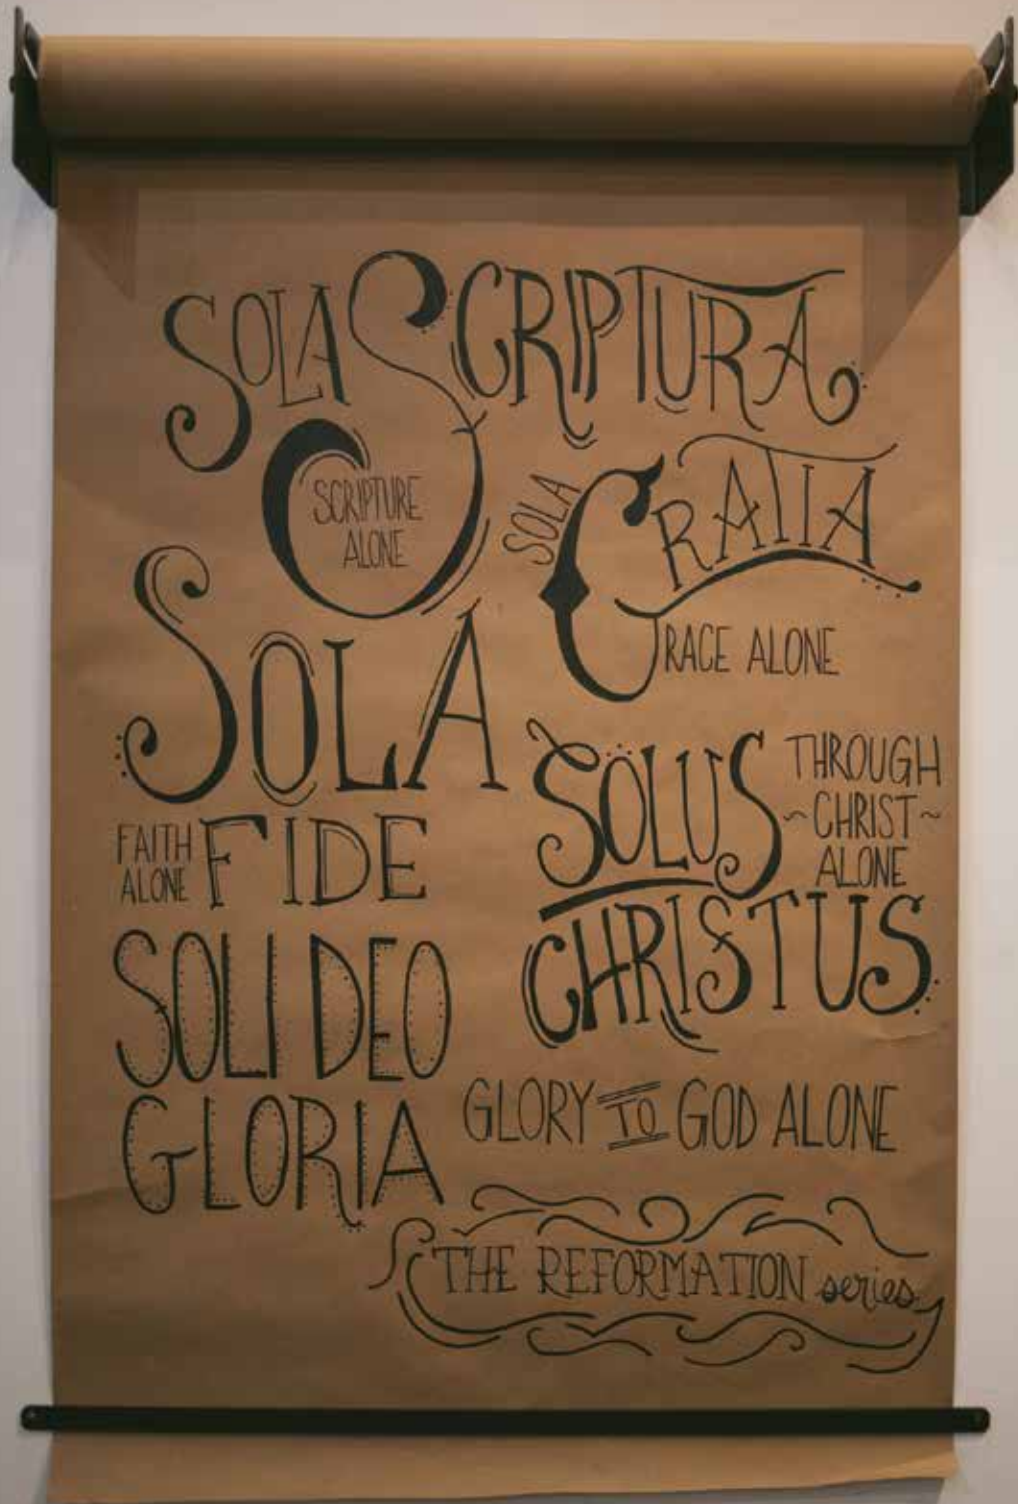 SOLA SCRIPTURA
SCRIPTURE
ALONE
SOLA GRATIA
GRACE ALONE
SOLA
FAITH
ALONE
FIDE
SOLUS
CHRISTUS
THROUGH
~ CHRIST ~
ALONE
SOLI DEO
GLORIA
GLORY TO GOD ALONE
THE REFORMATION series